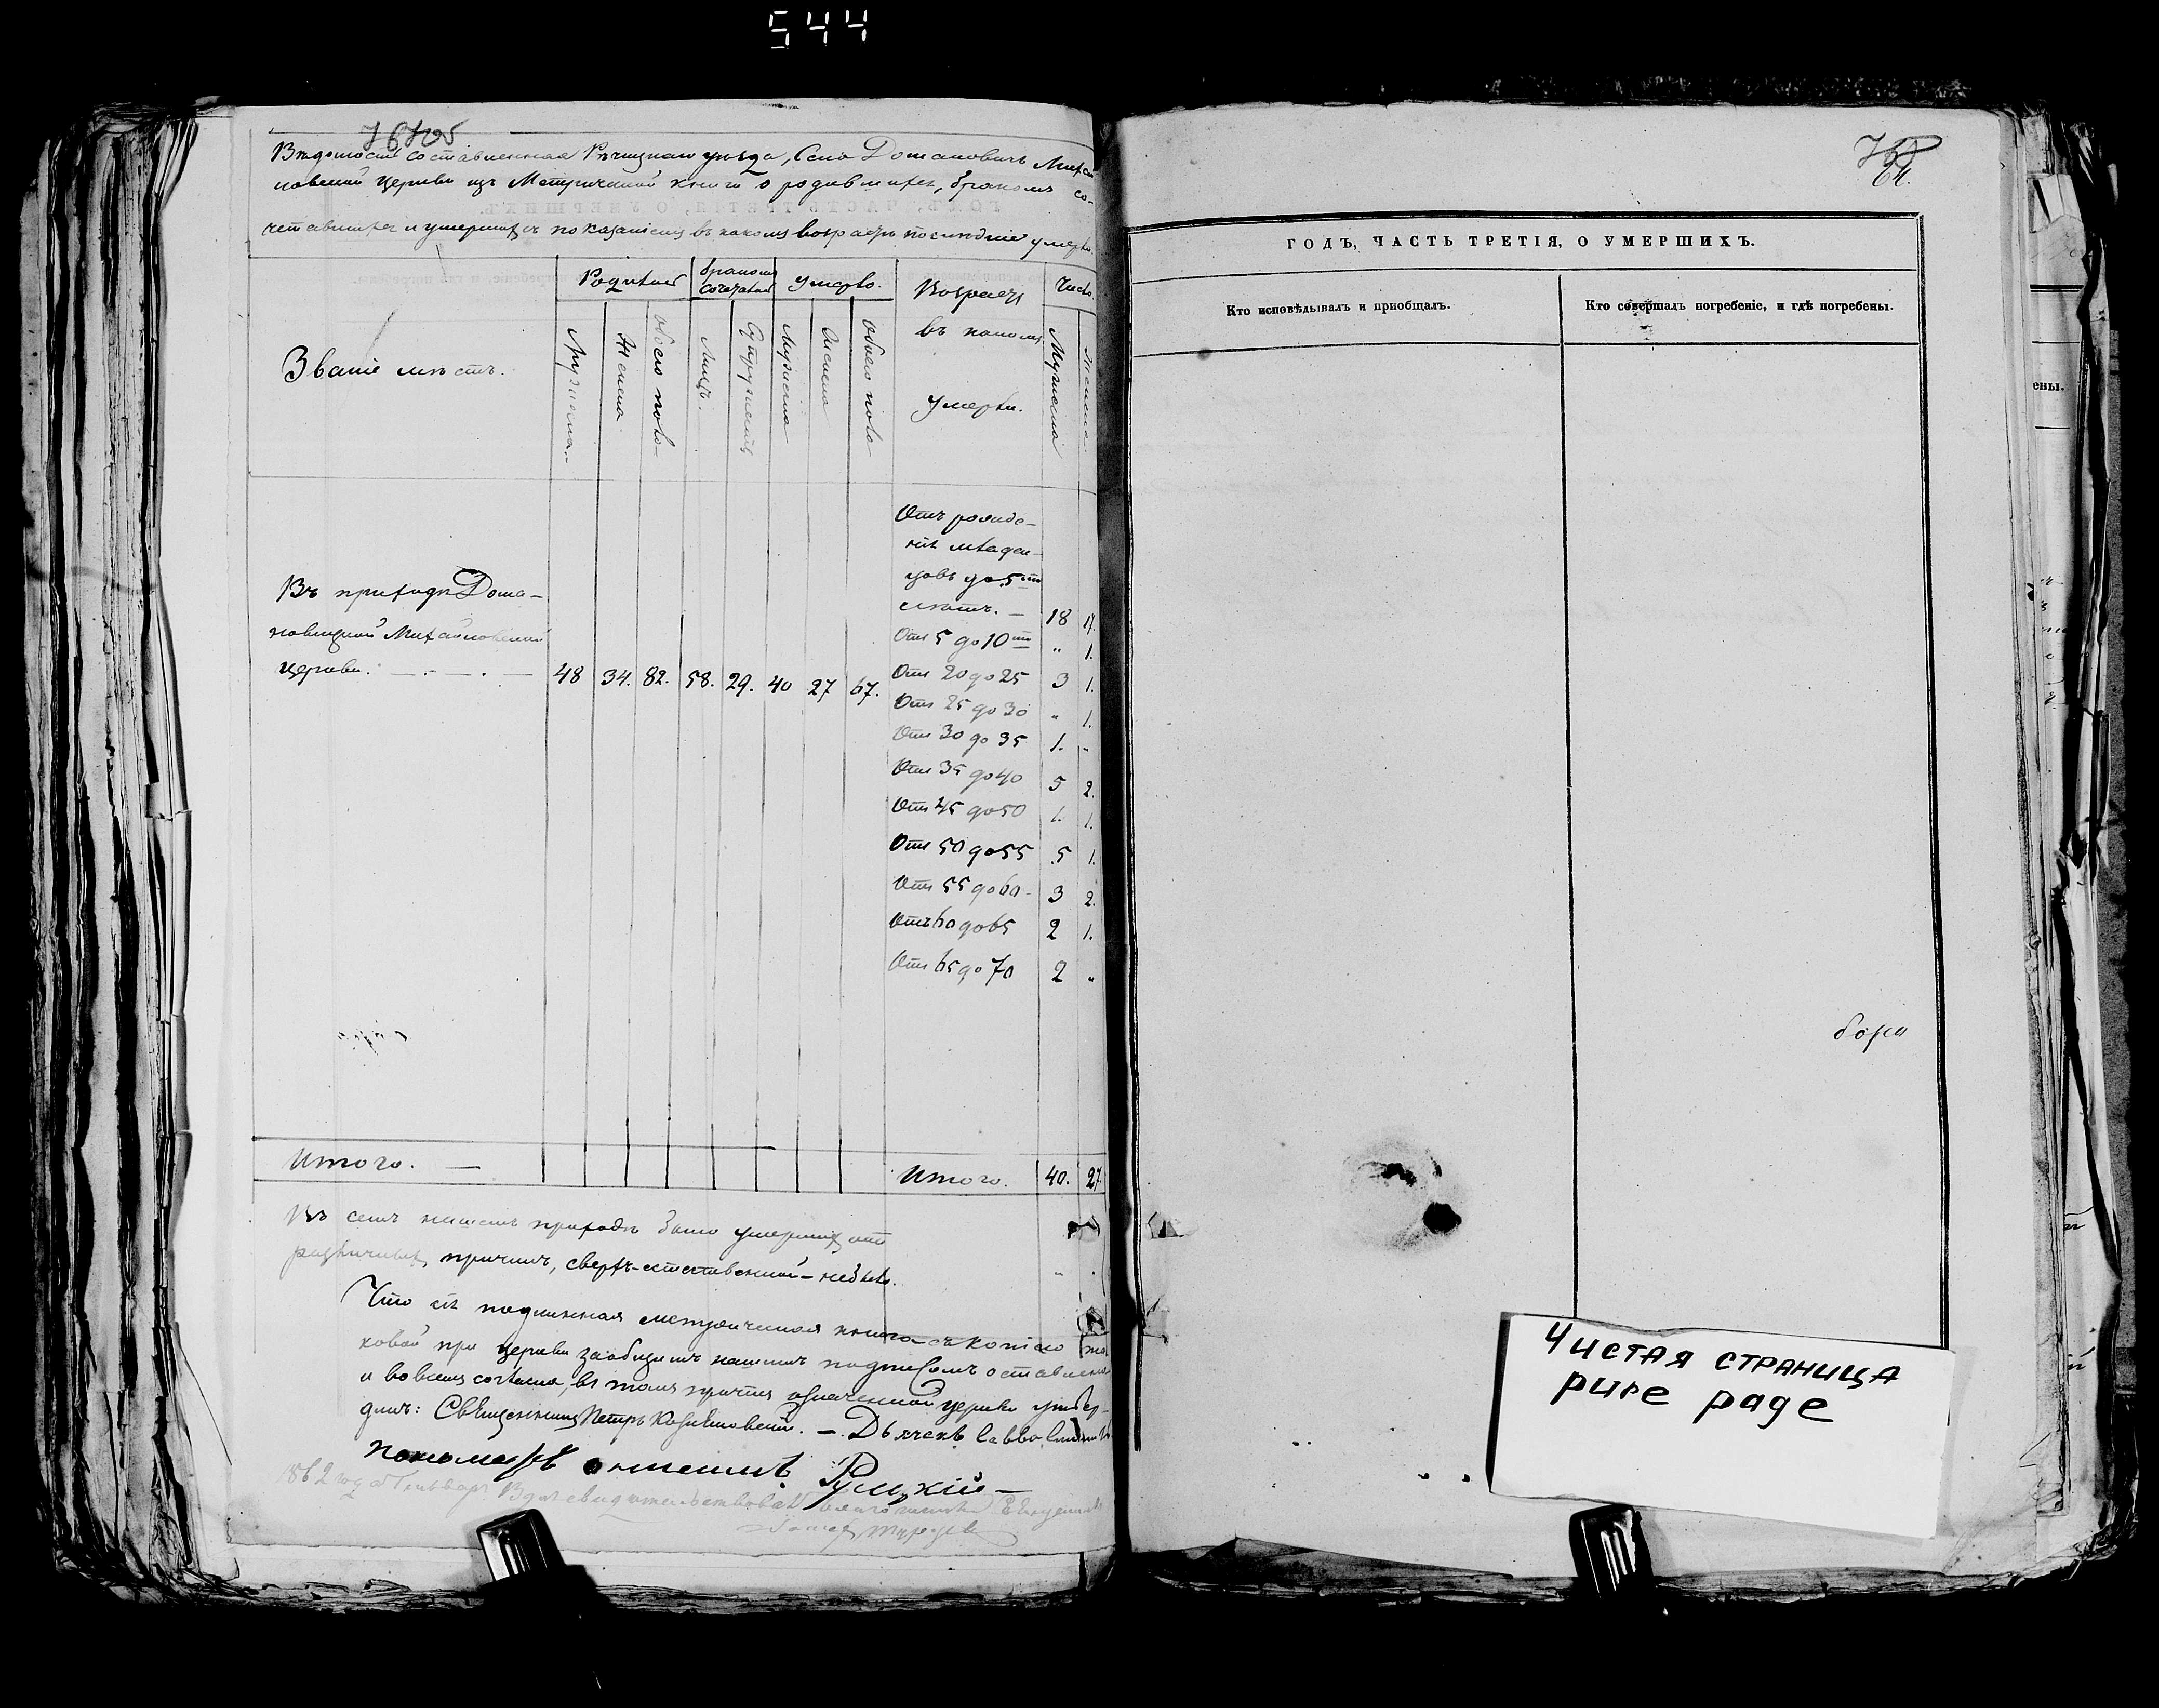 544
Вѣдомость составленная Рѣчицкаго уѣзда, Села Домановичъ Михай-
ловской церкви изъ Метрической книги о родившихся, бракомъ со-
четавшихся и умершихъ съ показаніемъ въ какомъ возрастѣ послѣдніе умерли.
Званіе мѣстъ.
Родилось
бракомъ сочеталось
Умерло.
Возрастъ въ какомъ умерли.
Число.
Мужеска.
Женска
Обоего пола
Лицъ.
Супружествъ
Мужеска
Женска
Обоего пола
Мужеска
Женска.
Въ приходѣ Дома-
новицкой Михайловской
церкви. 48 34. 82. 58. 29. 40 27 67.
Отъ рожде-
нія младен-
цовъ до 5ти
лѣтъ. — 18 17.
Отъ 5 до 10ти " 1.
Отъ 20 до 25 3 1.
Отъ 25 до 30 " 1.
Отъ 30 до 35 1. "
Отъ 35 до 40 5 2.
Отъ 45 до 50 1. 1.
Отъ 50 до 55 5 1.
Отъ 55 до 60 3 2.
Отъ 60 до 65 2 1.
Отъ 65 до 70 2 "
Итого. — Итого. 40. 27
Въ семъ нашемъ приходѣ было умершихъ отъ
различныхъ причинъ, сверхъ-естественной — небыло.
Что сія подлинная метрическая книга съ копіею та-
ковой при церкви за общимъ нашимъ подписомъ оставленной
и во всемъ согласна, въ томъ причтъ означенной церкви утвер-
димъ: Священникъ Петръ — Дьячекъ Савва
пономарь Руцкій —
1862 года Генваря
ГОДЪ, ЧАСТЬ ТРЕТІЯ, О УМЕРШИХЪ.
Кто исповѣдывалъ и пріобщалъ.
Кто совершалъ погребеніе, и гдѣ погребены.
ены.
Чистая страница
pure page